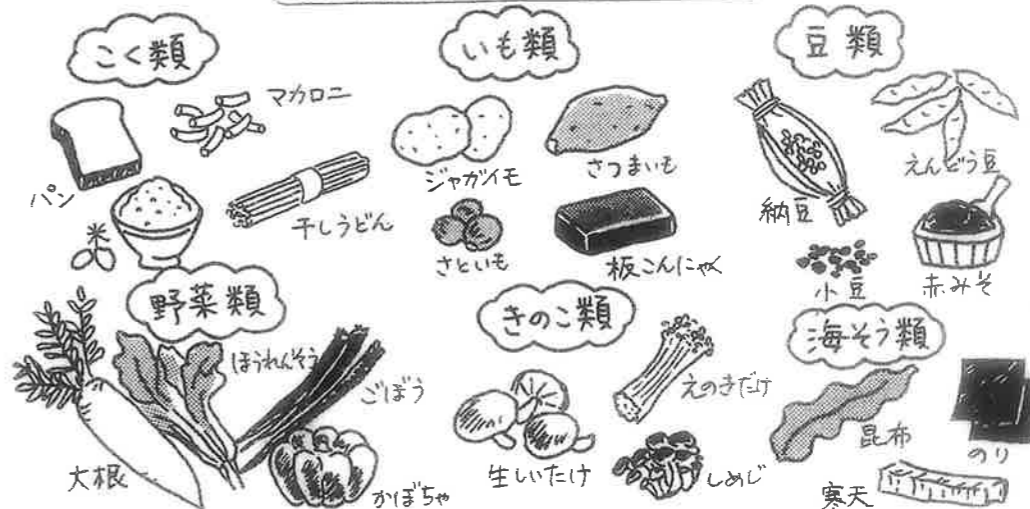 こく類
マカロニ
パン
干しうどん
米
いも類
ジャガイモ
さつまいも
さといも
板こんにゃく
豆類
えんどう豆
納豆
小豆
赤みそ
野菜類
ほうれんそう
ごぼう
大根
かぼちゃ
きのこ類
えのきだけ
生しいたけ
しめじ
海そう類
昆布
のり
寒天